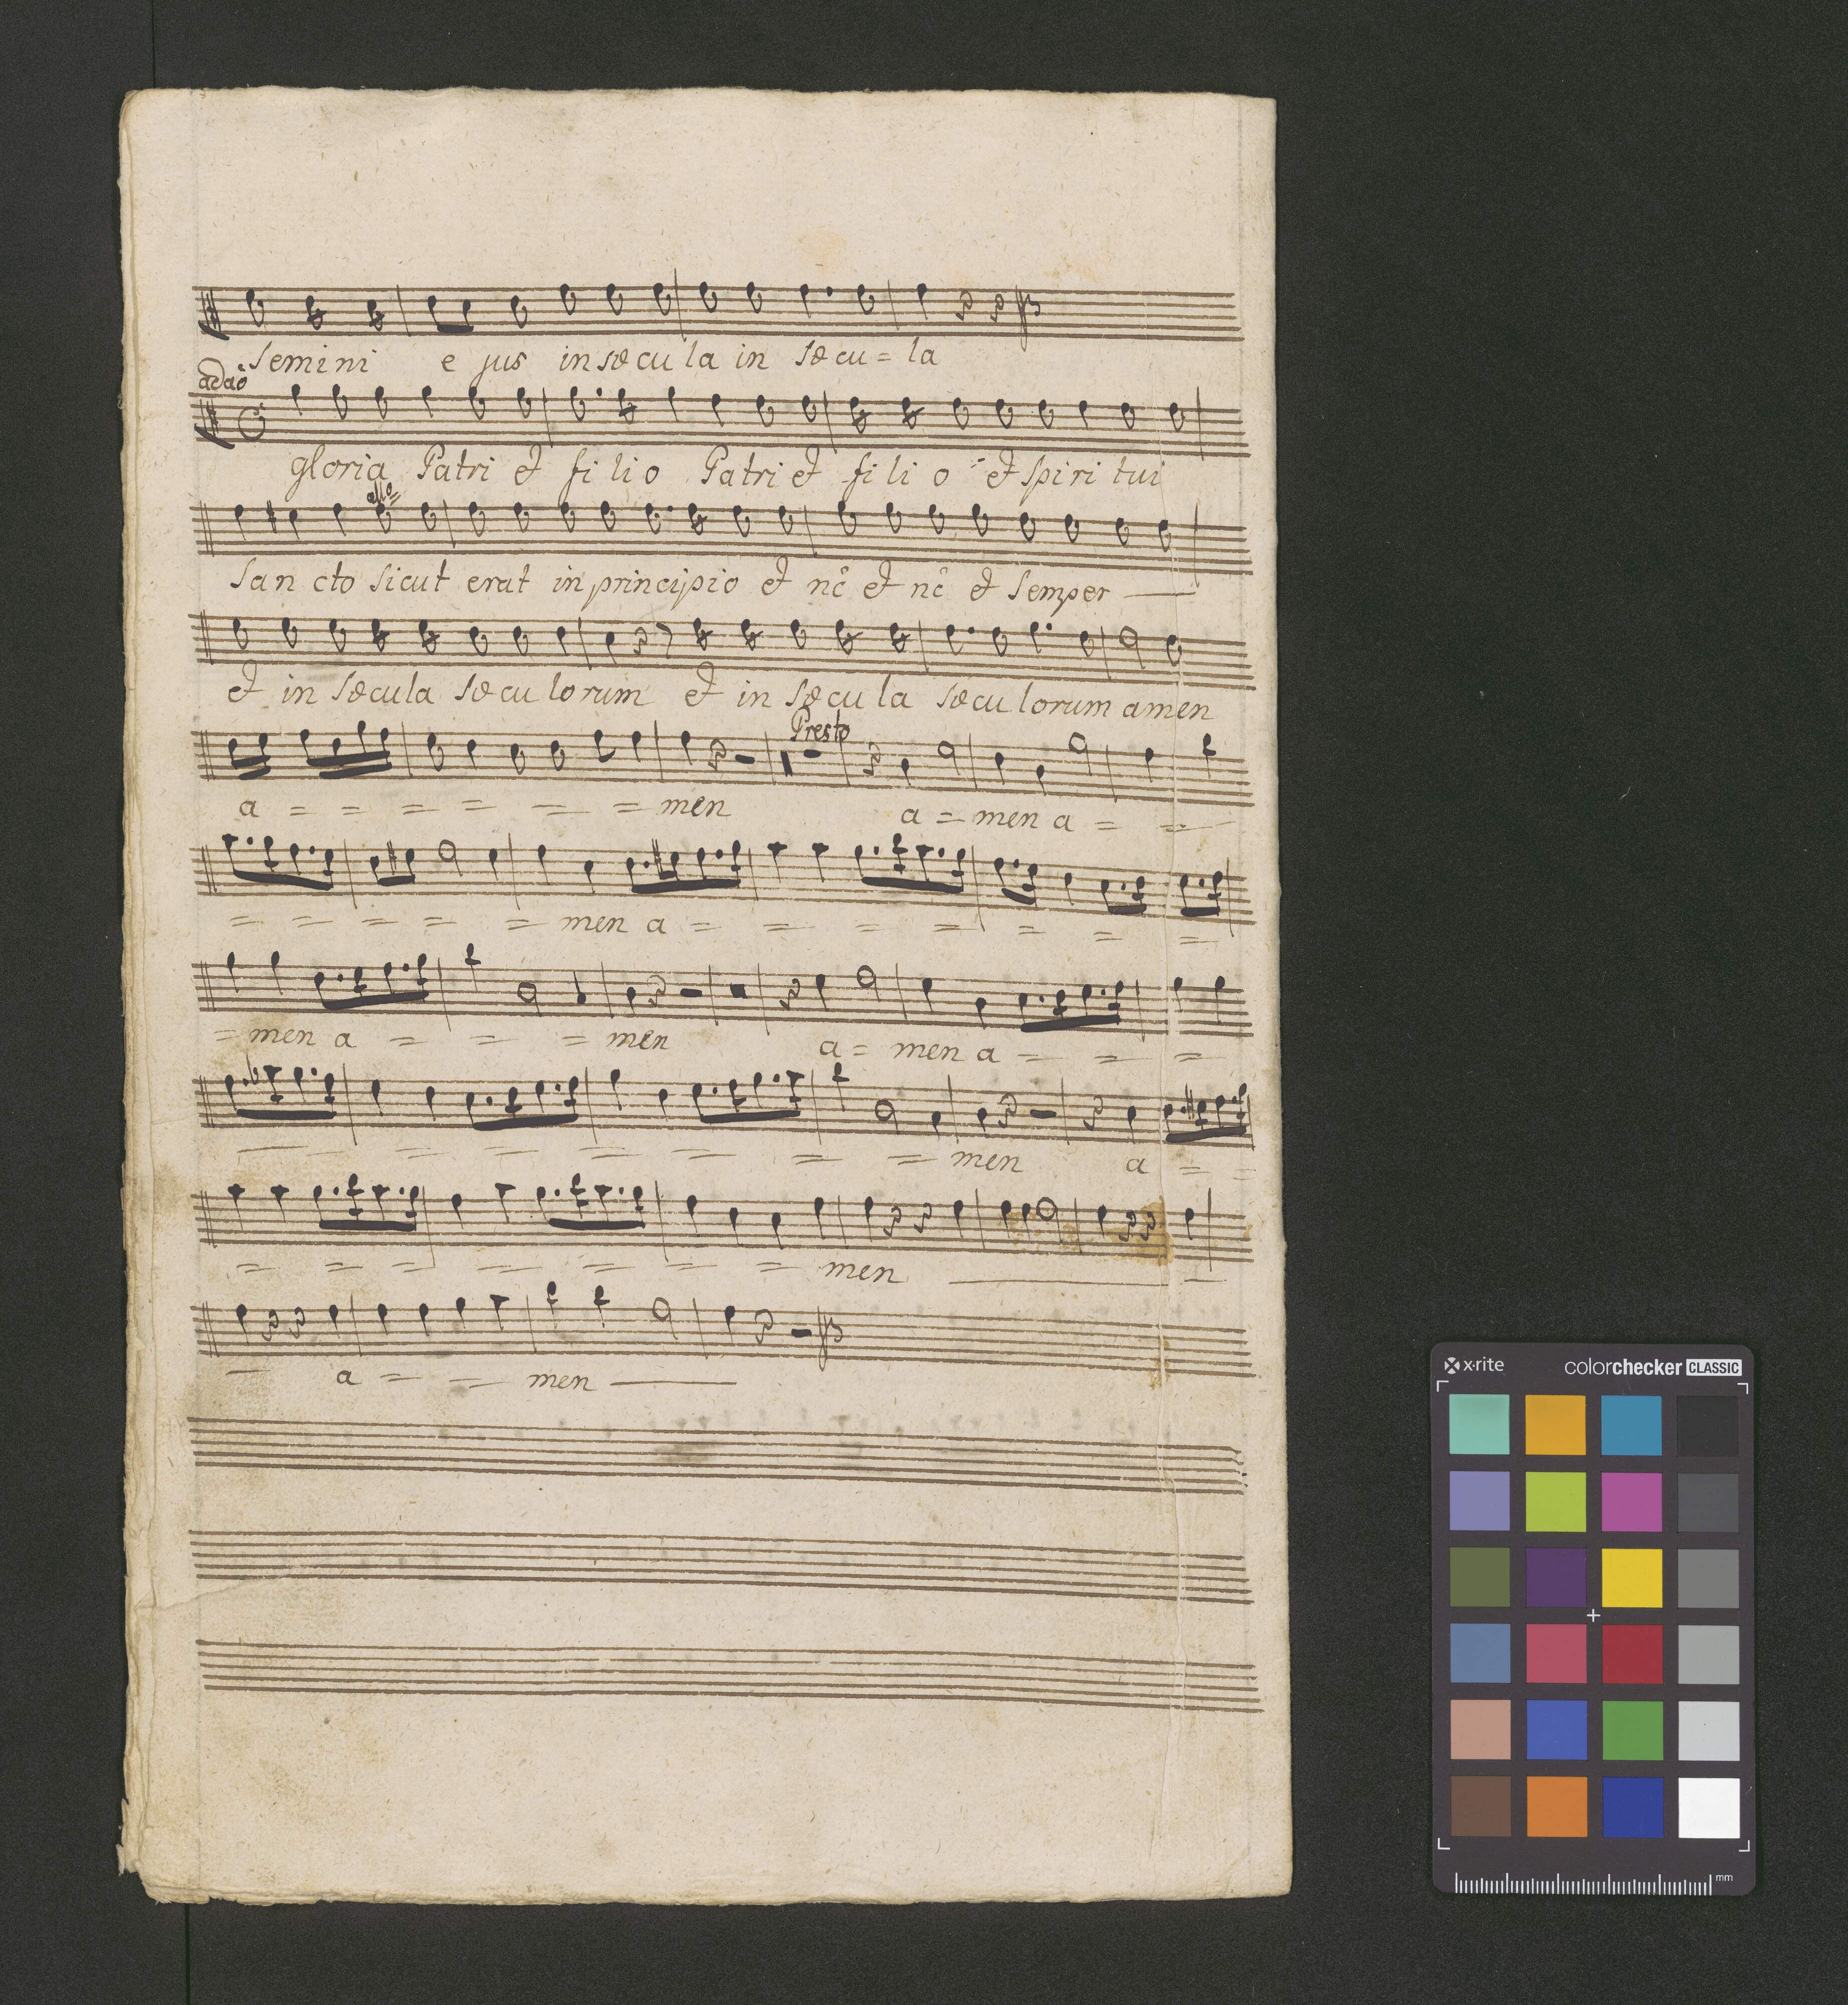 semini e jus in sæcu la in sæcu = la
adaõ
gloria Patri et fi li o Patri et fi li o et spiri tui
allo
san cto sicut erat in principio et nc̃ et nc̃ et semper
et in sæcula sæcu lorum et in sæcu la sæcu lorum amen
Presto
a = = = = = = men a = men a = =
= = = = = men a = = = = = = =
= men a = = = men a = men a = = =
= = = = = = men a = =
= = = = = = = men
a = = men
x·rite colorchecker CLASSIC
mm